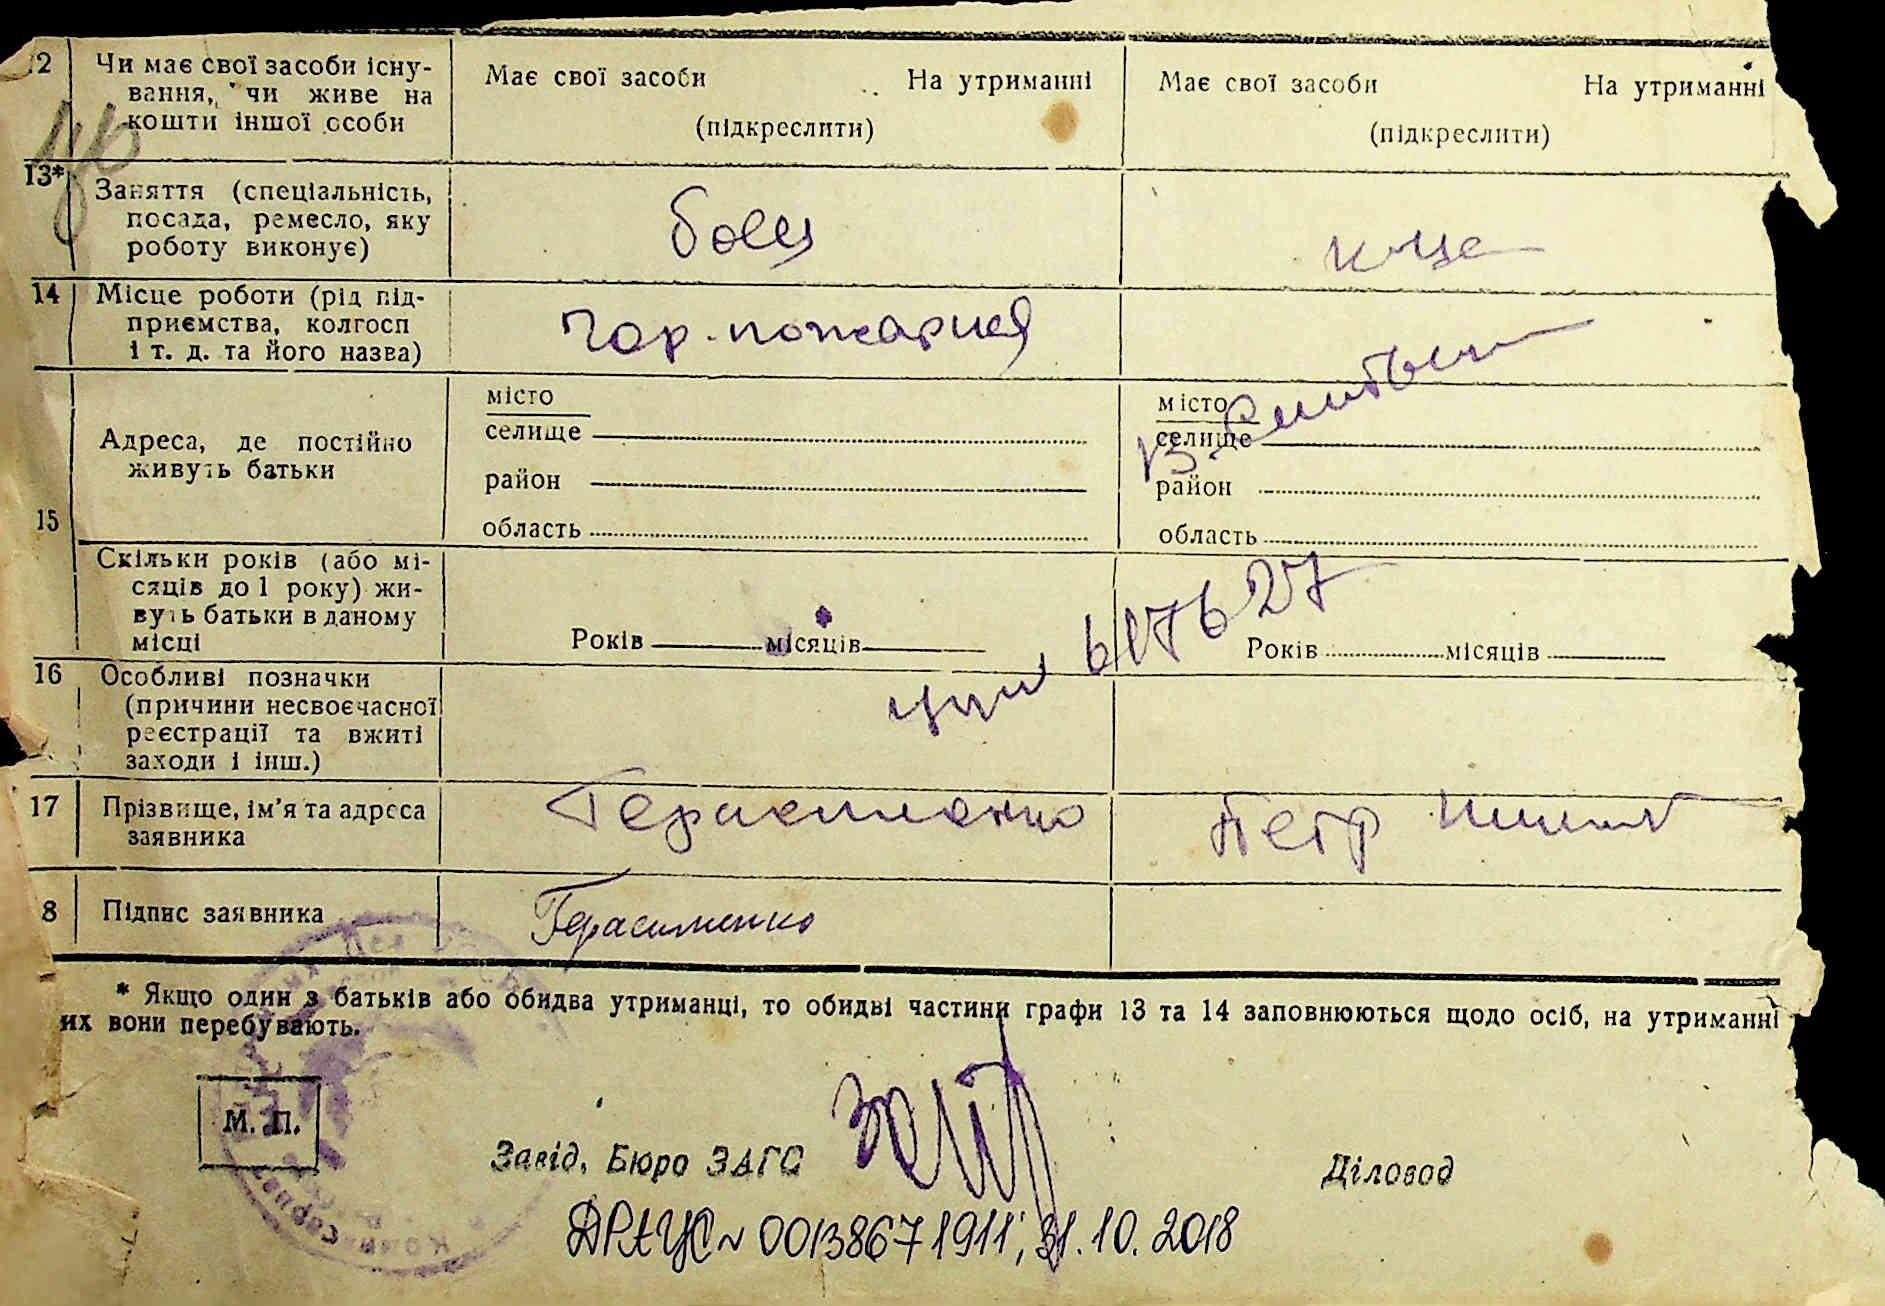 12 Чи має свої засоби існу-
вання, чи живе на
кошти іншої особи
Має свої засоби На утриманні
(підкреслити)
Має свої засоби На утриманні
(підкреслити)
13* Заняття (спеціальність,
посада, ремесло, яку
роботу виконує)
боец
14 Місце роботи (рід під-
приємства, колгосп
і т. д. та його назва)
Гор. пожарная
15
Адреса, де постійно
живуть батьки
місто
селище
район
область
місто
селище
район
область
Скільки років (або мі-
сяців до 1 року) жи-
вуть батьки в даному
місці
Років місяців
Років місяців
617627
16 Особливі позначки
(причини несвоєчасної
реєстрації та вжиті
заходи і інш.)
17 Прізвище, ім'я та адреса
заявника
Герасименко Петр
8 Підпис заявника
Герасименко
* Якщо один з батьків або обидва утриманці, то обидві частини графи 13 та 14 заповнюються щодо осіб, на утриманні
их вони перебувають.
М. П.
Завід. Бюро ЗАГС
Діловод
ДРАЦС № 00138671911; 31.10.2018